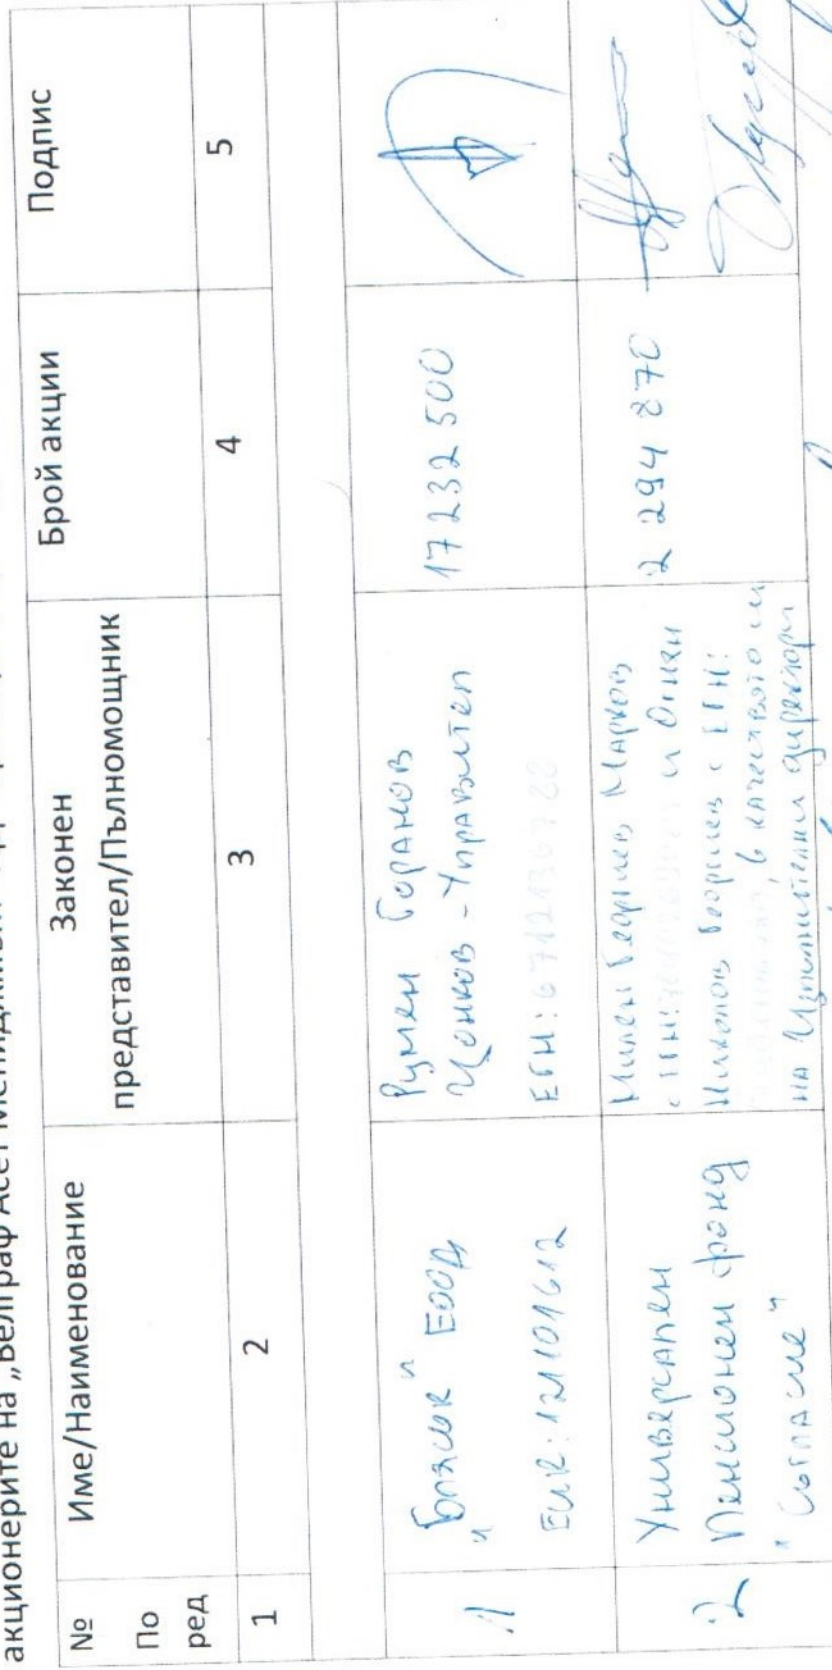 акционерите на „Велграф Асет Мениджмънт
№ По ред
Име/Наименование
Законен представител/Пълномощник
Брой акции
Подпис
1
2
3
4
5
1
„Блясък" ЕООД
ЕИК: 121101612
Румен Горанов
Цонков - Управител
ЕГН:
17 232 500
2
Универсален
Пенсионен фонд
"Съгласие"
Милен Георгиев Марков
с ЕГН: и Огнян
Николов Георгиев с ЕГН:
, в качеството им
на Изпълнителни директори
2 294 870